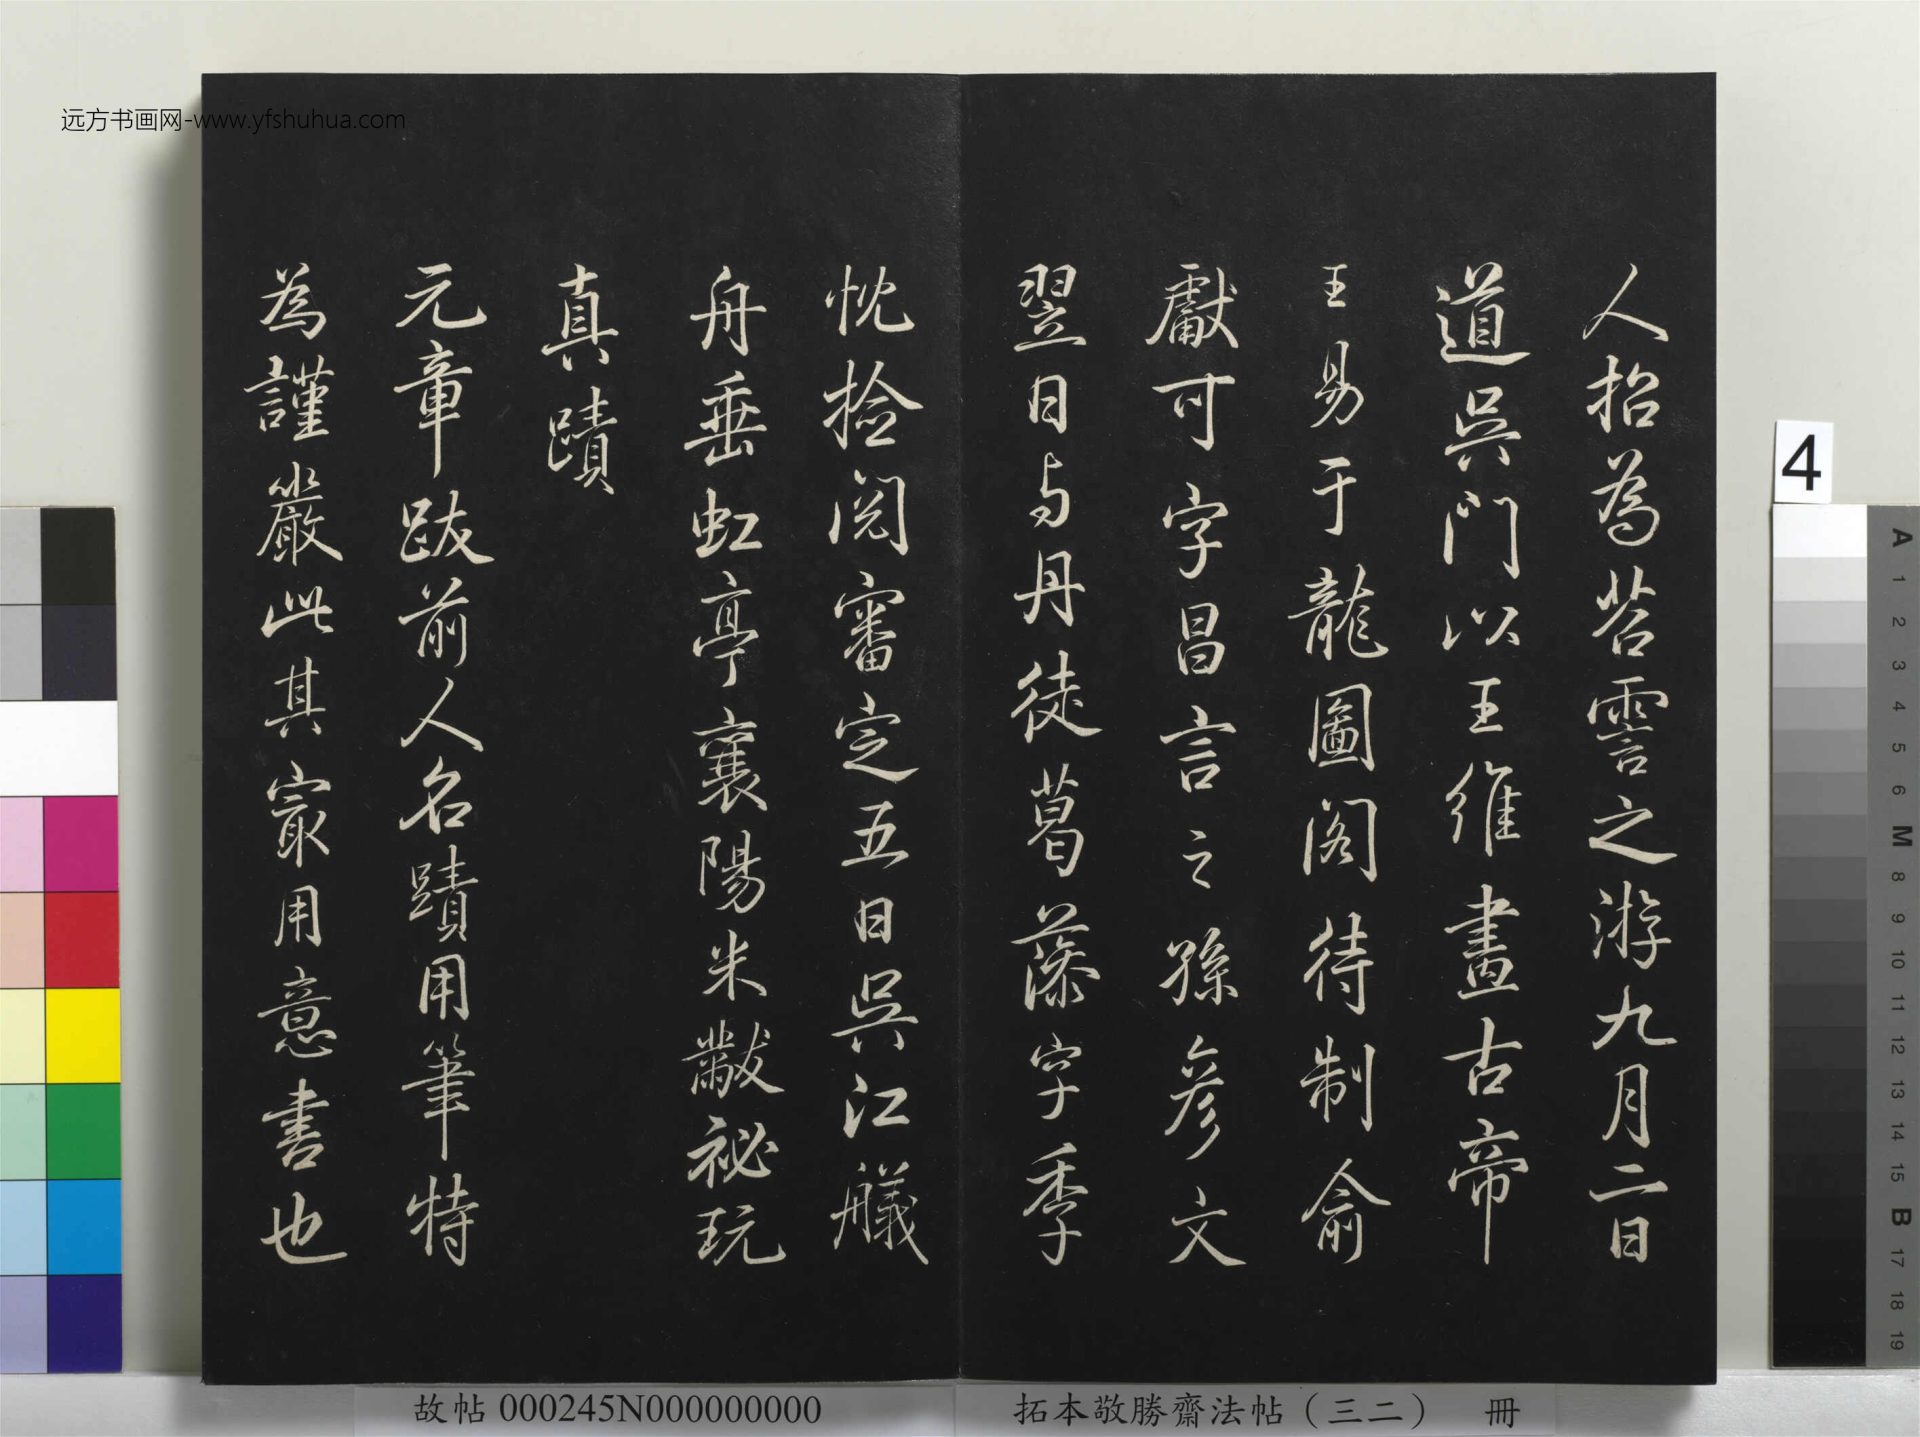 人招為苕霅之游九月二日
道吳門以王維畫古帝
王易于龍圖閣待制俞
獻可字昌言之孫彥文
翌日与丹徒葛藻字季
忱撿閱審定五日吳江艤
舟垂虹亭襄陽米黻祕玩
真蹟
元章跋前人名蹟用筆特
為謹嚴此其寂用意書也
远方书画网-www.yfshuhua.com
4
A 1 2 3 4 5 6 M 8 9 10 11 12 13 14 15 B 17 18 19
拓本敬勝齋法帖（三二） 冊
故帖 000245N000000000